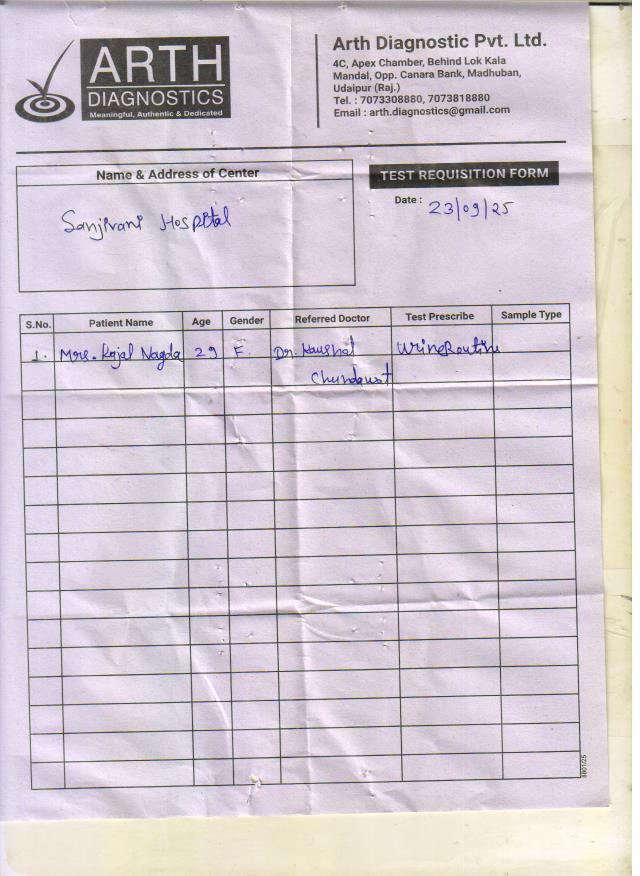 ARTH
DIAGNOSTICS
Meaningful, Authentic & Dedicated
Arth Diagnostic Pvt. Ltd.
4C, Apex Chamber, Behind Lok Kala
Mandal, Opp. Canara Bank, Madhuban,
Udaipur (Raj.)
Tel. : 7073308880, 7073818880
Email : arth.diagnostics@gmail.com
Name & Address of Center
Sanjivani Hospital
TEST REQUISITION FORM
Date : 23/09/25
S.No. Patient Name Age Gender Referred Doctor Test Prescribe Sample Type
1. Mrs. Kajal Nagda 29 F. Dr. Kaushal Urine Routine
Chundawat
8801/25